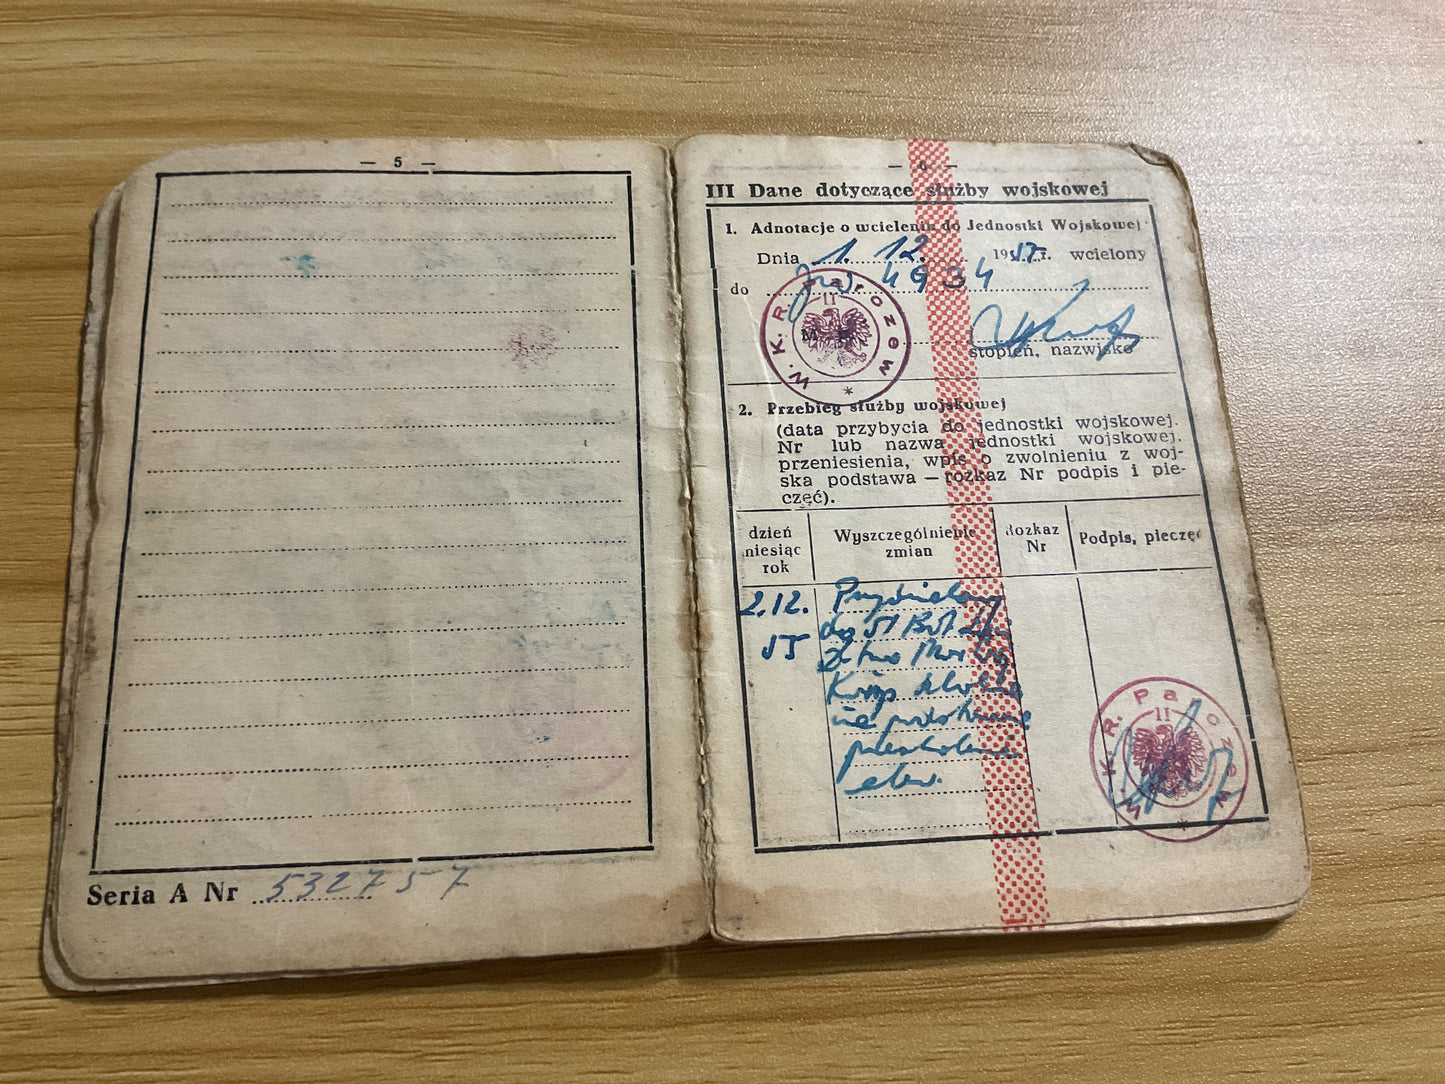 — 5 —
Seria A Nr 532757
— 6 —
III Dane dotyczące służby wojskowej
1. Adnotacje o wcieleniu do Jednostki Wojskowej
Dnia 1. 12. 1955 r. wcielony
do JW 4934
M. P.
stopień, nazwisko
W. K. R. Parczew *
II
2. Przebieg służby wojskowej
(data przybycia do jednostki wojskowej.
Nr lub nazwa jednostki wojskowej.
przeniesienia, wpis o zwolnieniu z woj-
ska podstawa — rozkaz Nr podpis i pie-
częć).
dzień
miesiąc
rok
Wyszczególnienie
zmian
Rozkaz
Nr
Podpis, pieczęć
2.12.
55
do 51
W. K. R. Parczew *
II